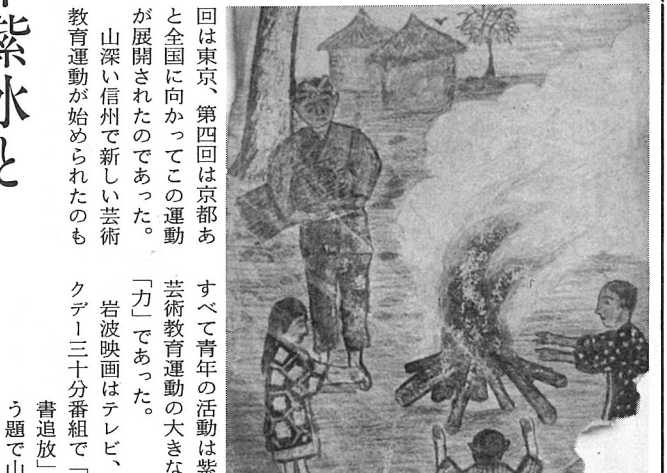 回は東京、第四回は京都あ
と全国に向かってこの運動
が展開されたのであった。
山深い信州で新しい芸術
教育運動が始められたのも
すべて青年の活動は紫
芸術教育運動の大きな
「力」であった。
岩波映画はテレビ、
クデー三十分番組で「
書追放」
う題で山
紫水と